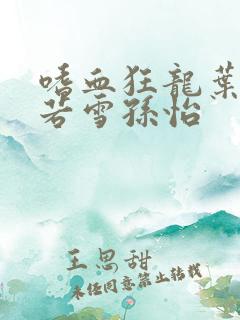 嗜血狂龍葉
若雪孫怡
王思甜
未经同意禁止转载